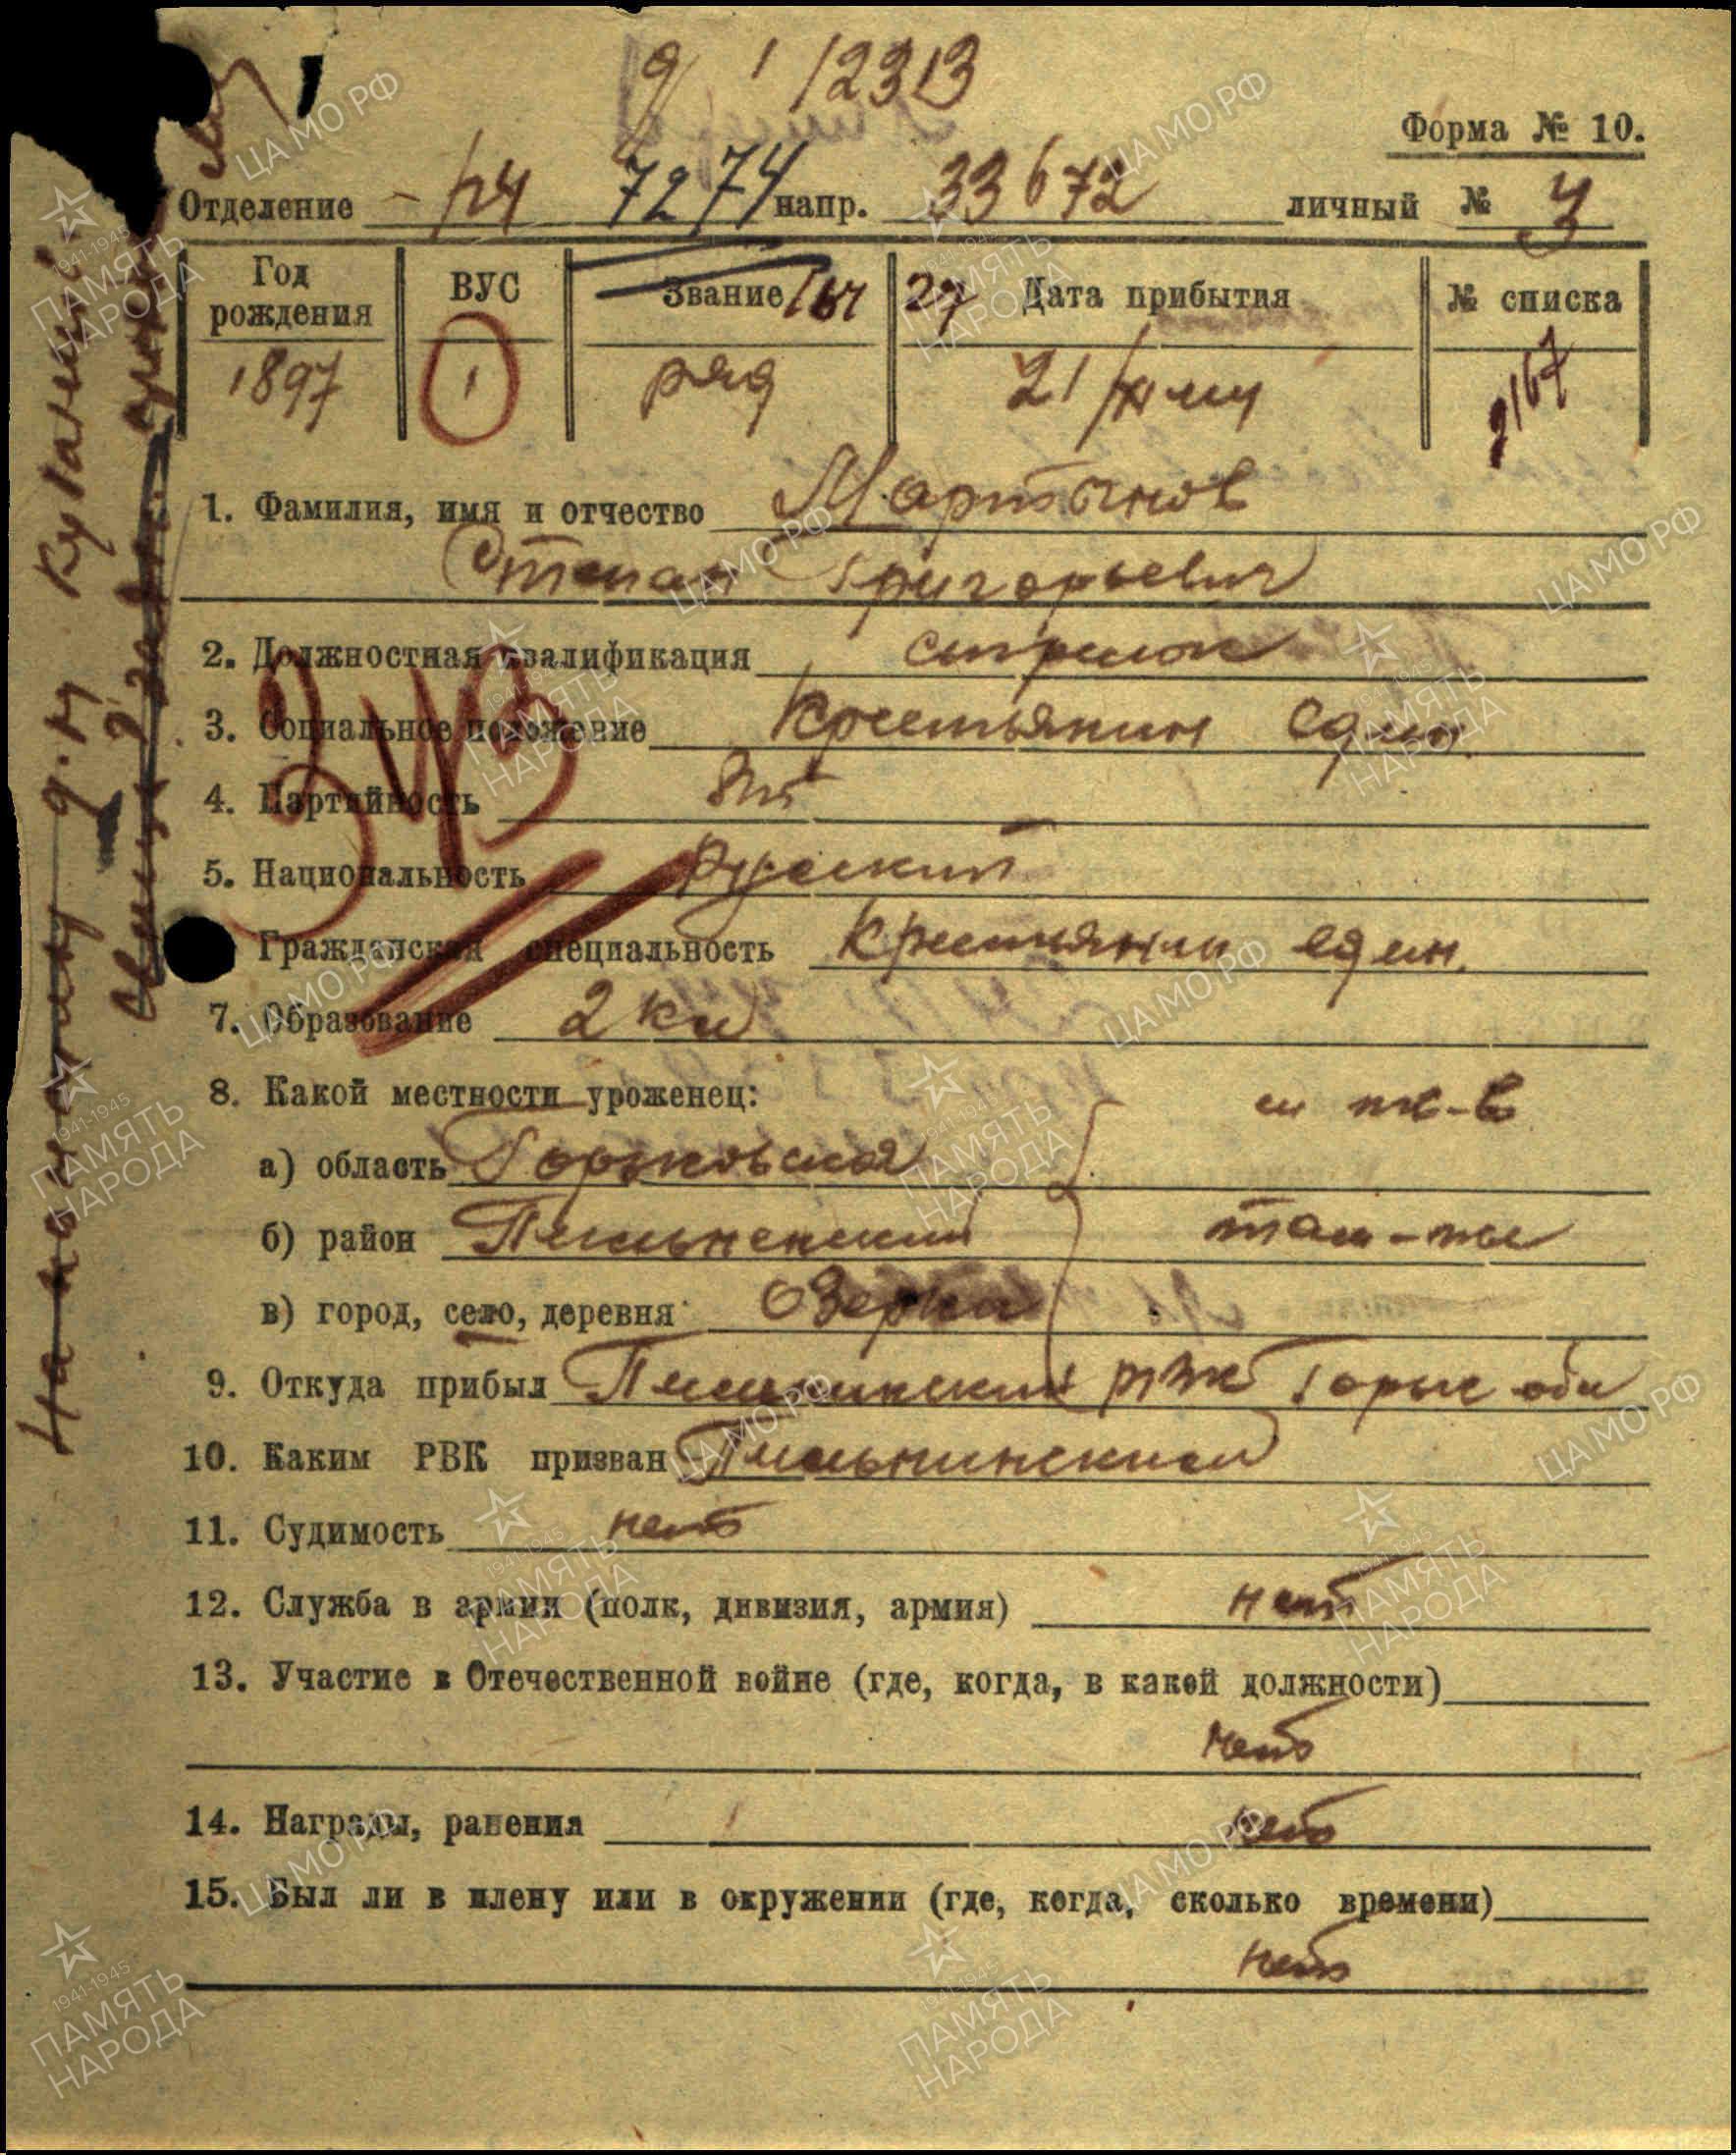 12313
Форма № 10.
Отделение 7274 напр. 33672 личный № 3
Год рождения ВУС Звание 27 Дата прибытия № списка
1897 1 ряд 21/ 2167
1. Фамилия, имя и отчество Мартынов
Степан Григорьевич
2. Должностная квалификация стрелок
3. Социальное положение Крестьянин един.
4. Партийность б/п
5. Национальность Русский
Гражданская специальность Крестьянин един.
7. Образование 2 кл
8. Какой местности уроженец: м ж-в
а) область Горьковская
б) район Пильненский там-же
в) город, село, деревня Озерки
9. Откуда прибыл Пильнинский РВК Горьк обл
10. Каким РВК призван Пильнинским
11. Судимость нет
12. Служба в армии (полк, дивизия, армия) нет
13. Участие в Отечественной войне (где, когда, в какой должности)
нет
14. Награды, ранения нет
15. Был ли в плену или в окружении (где, когда, сколько времени)
нет